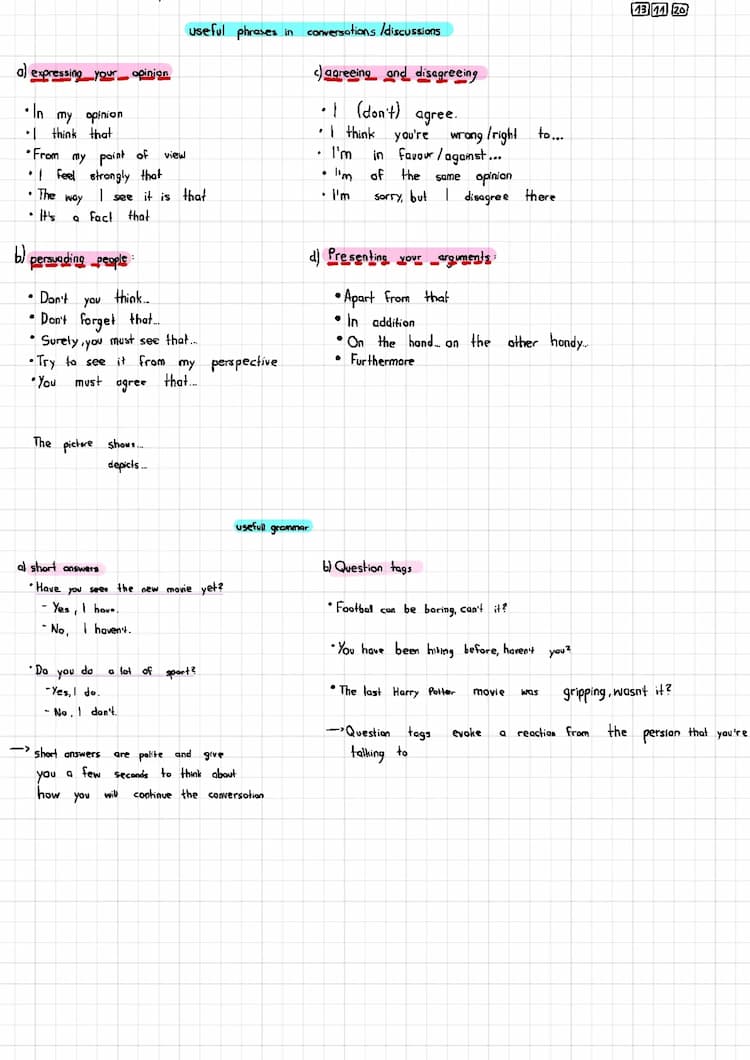 13 11 20
useful phrases in conversations/discussions
a) expressing your opinion
• In my opinion
• I think that
• From my point of view
• I feel strongly that
• The way I see it is that
• It's a fact that
b) persuading people:
• Don't you think...
• Don't forget that...
• Surely, you must see that...
• Try to see it from my perspective
• You must agree that...
The picture shows...
depicts...
c) agreeing and disagreeing
• I (don't) agree.
• I think you're wrong/right to...
• I'm in favour/against...
• I'm of the same opinion
• I'm sorry, but I disagree there
d) Presenting your arguments:
• Apart from that
• In addition
• On the hand... on the other handy...
• Furthermore
usefull grammar
a) short answers
• Have you seen the new movie yet?
- Yes, I have.
- No, I haven't.
• Do you do a lot of sport?
- Yes, I do.
- No, I don't.
→ short answers are polite and give
you a few seconds to think about
how you will continue the conversation
b) Question tags
• Footbal can be boring, can't it?
• You have been hiking before, haven't you?
• The last Harry Potter movie was gripping, wasnt it?
→ Question tags evoke a reaction from the persion that you're
talking to